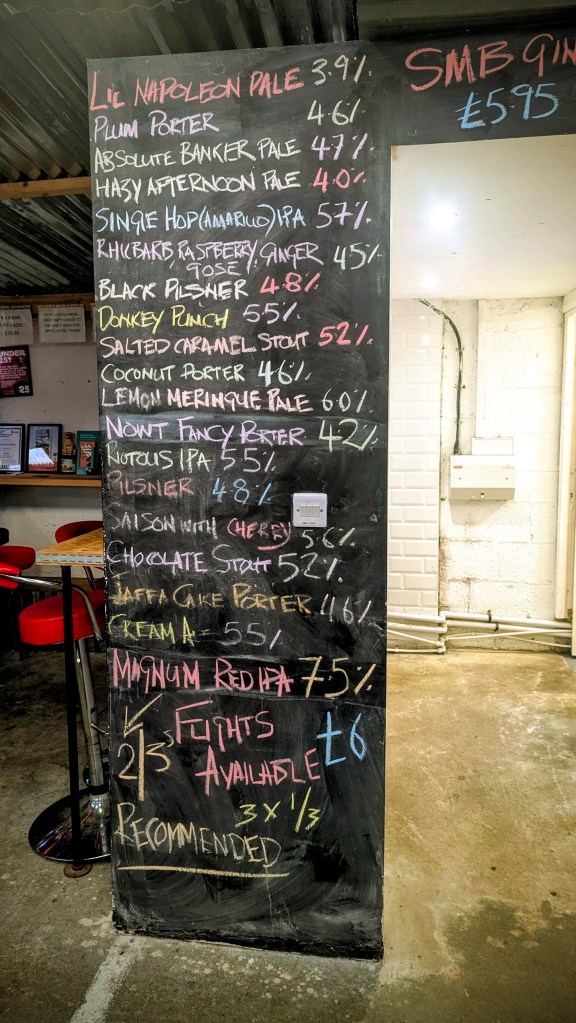 LIL NAPOLEON PALE 3.9%
PLUM PORTER 4.6%
ABSOLUTE BANKER PALE 4.7%
HAZY AFTERNOON PALE 4.0%
SINGLE HOP (AMARILLO) IPA 5.7%
RHUBARB, RASPBERRY, GINGER
GOSE 4.5%
BLACK PILSNER 4.8%
DONKEY PUNCH 5.5%
SALTED CARAMEL STOUT 5.2%
COCONUT PORTER 4.6%
LEMON MERINGUE PALE 6.0%
NOWT FANCY PORTER 4.2%
RIOTOUS IPA 5.5%
PILSNER 4.8%
SAISON WITH CHERRY 5.6%
CHOCOLATE STOUT 5.2%
JAFFA CAKE PORTER 4.6%
CREAM A = 5.5%
MAGNUM RED IPA 7.5%
2/3s
FLIGHTS
AVAILABLE £6
3 X 1/3
RECOMMENDED
SMB GIN
£5.95
25